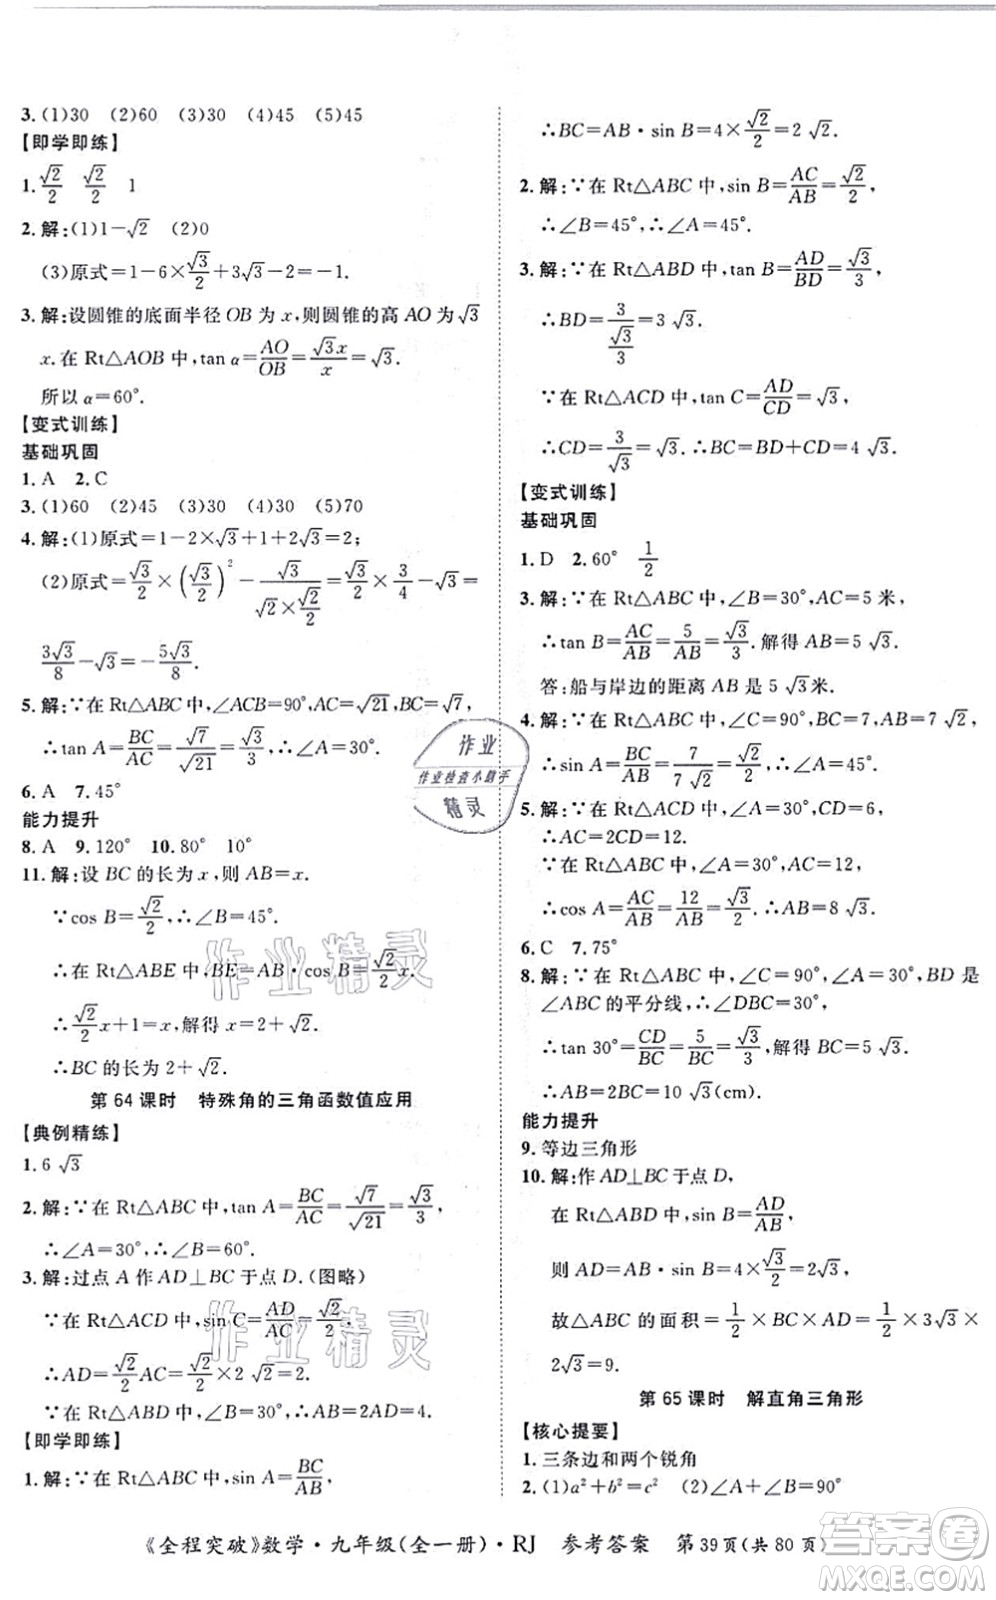 3. (1)30 (2)60 (3)30 (4)45 (5)45
【即学即练】
1. √2/2 √2/2 1
2. 解:(1)1-√2 (2)0
(3)原式=1-6×√3/2+3√3-2=-1.
3. 解:设圆锥的底面半径 OB 为 x,则圆锥的高 AO 为 √3
x. 在 Rt△AOB 中,tan α=AO/OB=√3x/x=√3.
所以 α=60°.
【变式训练】
基础巩固
1. A 2. C
3. (1)60 (2)45 (3)30 (4)10 (5)70
4. 解:(1)原式=1-2×√3+1+2√3=2;
(2)原式=√3/2×(√3/2)²-√3/(√2×√2/2)=√3/2×3/4-√3=
3√3/8-√3=-5√3/8.
5. 解:∵在 Rt△ABC 中,∠ACB=90°,AC=√21,BC=√7,
∴tan A=BC/AC=√7/√21=√3/3,∴∠A=30°.
6. A 7. 45°
能力提升
8. A 9. 120° 10. 80° 10°
11. 解:设 BC 的长为 x,则 AB=x.
∵cos B=√2/2,∴∠B=45°.
∵在 Rt△ABE 中,BE=AB·cos B=√2/2x.
∴√2/2x+1=x,解得 x=2+√2.
∴BC 的长为 2+√2.
第 64 课时 特殊角的三角函数值应用
【典例精练】
1. 6√3
2. 解:∵在 Rt△ABC 中,tan A=BC/AC=√7/√21=√3/3,
∴∠A=30°,∴∠B=60°.
3. 解:过点 A 作 AD⊥BC 于点 D.(图略)
∵在 Rt△ACD 中,sin C=AD/AC=√2/2,
∴AD=√2/2AC=√2/2×2√2=2.
∵在 Rt△ABD 中,∠B=30°,∴AB=2AD=4.
【即学即练】
1. 解:∵在 Rt△ABC 中,sin A=BC/AB,
∴BC=AB·sin B=4×√2/2=2√2.
2. 解:∵在 Rt△ABC 中,sin B=AC/AB=√2/2,
∴∠B=45°,∴∠A=45°.
3. 解:∵在 Rt△ABD 中,tan B=AD/BD=√3/3,
∴BD=3/(√3/3)=3√3.
∵在 Rt△ACD 中,tan C=AD/CD=√3,
∴CD=3/√3=√3.∴BC=BD+CD=4√3.
【变式训练】
基础巩固
1. D 2. 60° 1/2
3. 解:∵在 Rt△ABC 中,∠B=30°,AC=5 米,
∴tan B=AC/AB=5/AB=√3/3. 解得 AB=5√3.
答:船与岸边的距离 AB 是 5√3米.
4. 解:∵在 Rt△ABC 中,∠C=90°,BC=7,AB=7√2,
∴sin A=BC/AB=7/7√2=√2/2,∴∠A=45°.
5. 解:∵在 Rt△ACD 中,sin A=1/2,CD=6,
∴AC=2CD=12.
∵在 Rt△ABC 中,cos A=√3/2,AC=12,
∴cos A=AC/AB=12/AB=√3/2.∴AB=8√3.
6. C 7. 75°
8. 解:∵在 Rt△ABC 中,∠C=90°,∠A=30°,BD 是
∠ABC 的平分线,∴∠DBC=30°,
∴tan 30°=CD/BC=5/BC=√3/3,∴BC=5√3.
∴AB=2BC=2×5√3=10√3(cm).
能力提升
9. 等边三角形
10. 解:作 AD⊥BC 于点 D,
在 Rt△ABD 中,sin B=AD/AB,
则 AD=AB·sin B=4×√3/2=2√3,
故△ABC 的面积=1/2×BC×AD=1/2×3√3×
2√3=9.
第 65 课时 解直角三角形
【核心提要】
1. 三条边和两个锐角
2. (1)a²+b²=c² (2)∠A+∠B=90°
《全程突破》数学·九年级(全一册)·RJ 参考答案 第39页(共 80 页)
作业
作业检查小助手
精灵
作业精灵
作业精灵
作业答案
MXQE.COM